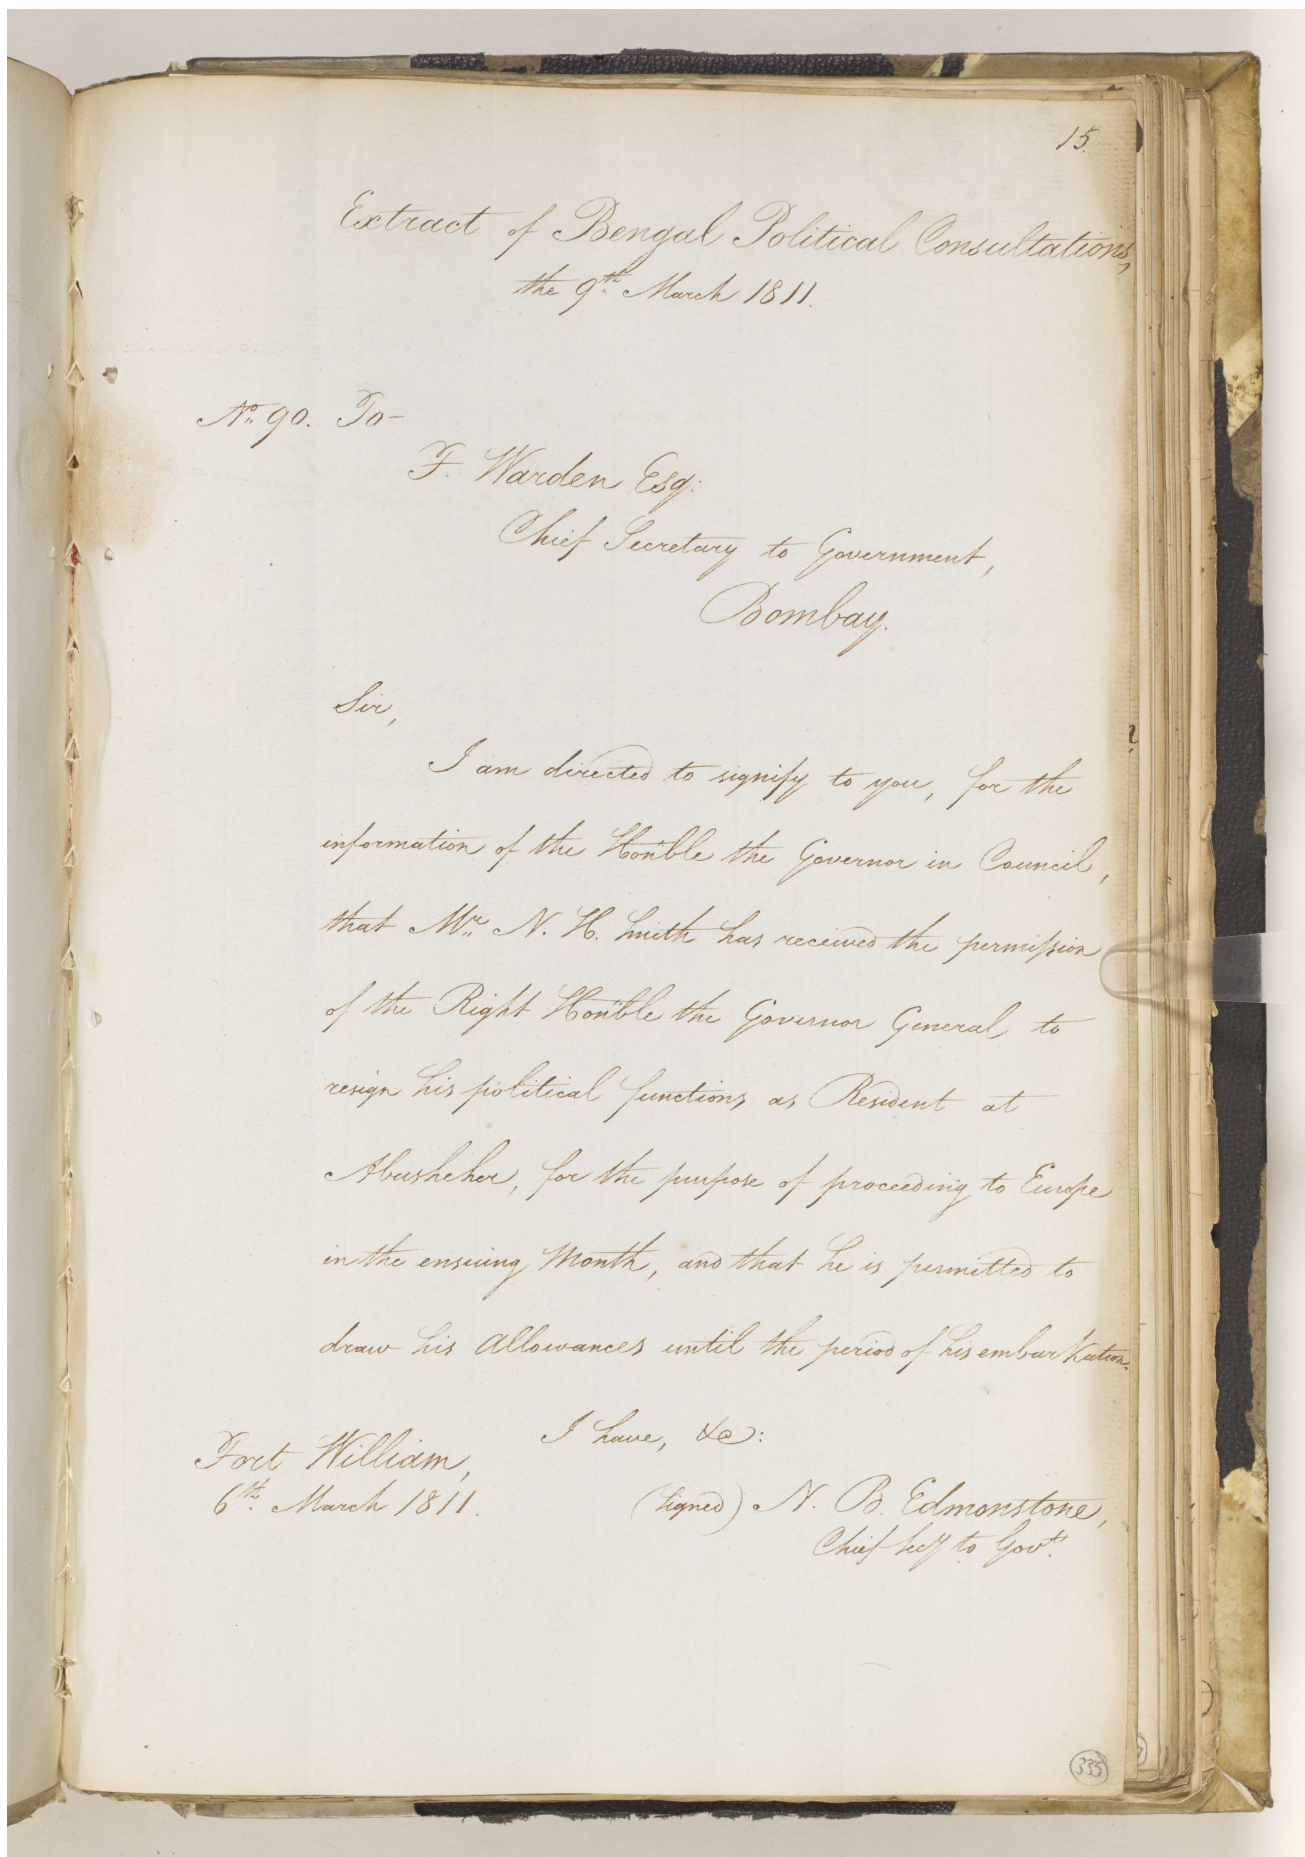 15.
Extract of Bengal Political Consultations,
the 9th March 1811.
No. 90. To-
F. Warden Esq:
Chief Secretary to Government,
Bombay.
Sir,
I am directed to signify to you, for the
information of the Hon'ble the Governor in Council,
that Mr. N. H. Smith has received the permission
of the Right Hon'ble the Governor General to
resign his political functions as Resident at
Abusheher, for the purpose of proceeding to Europe
in the ensuing Month, and that he is permitted to
draw his Allowances until the period of his embarkation.
I have, &c:
Fort William,
6th. March 1811.
(signed) N. B. Edmonstone,
Chief Secy to Govt.
335